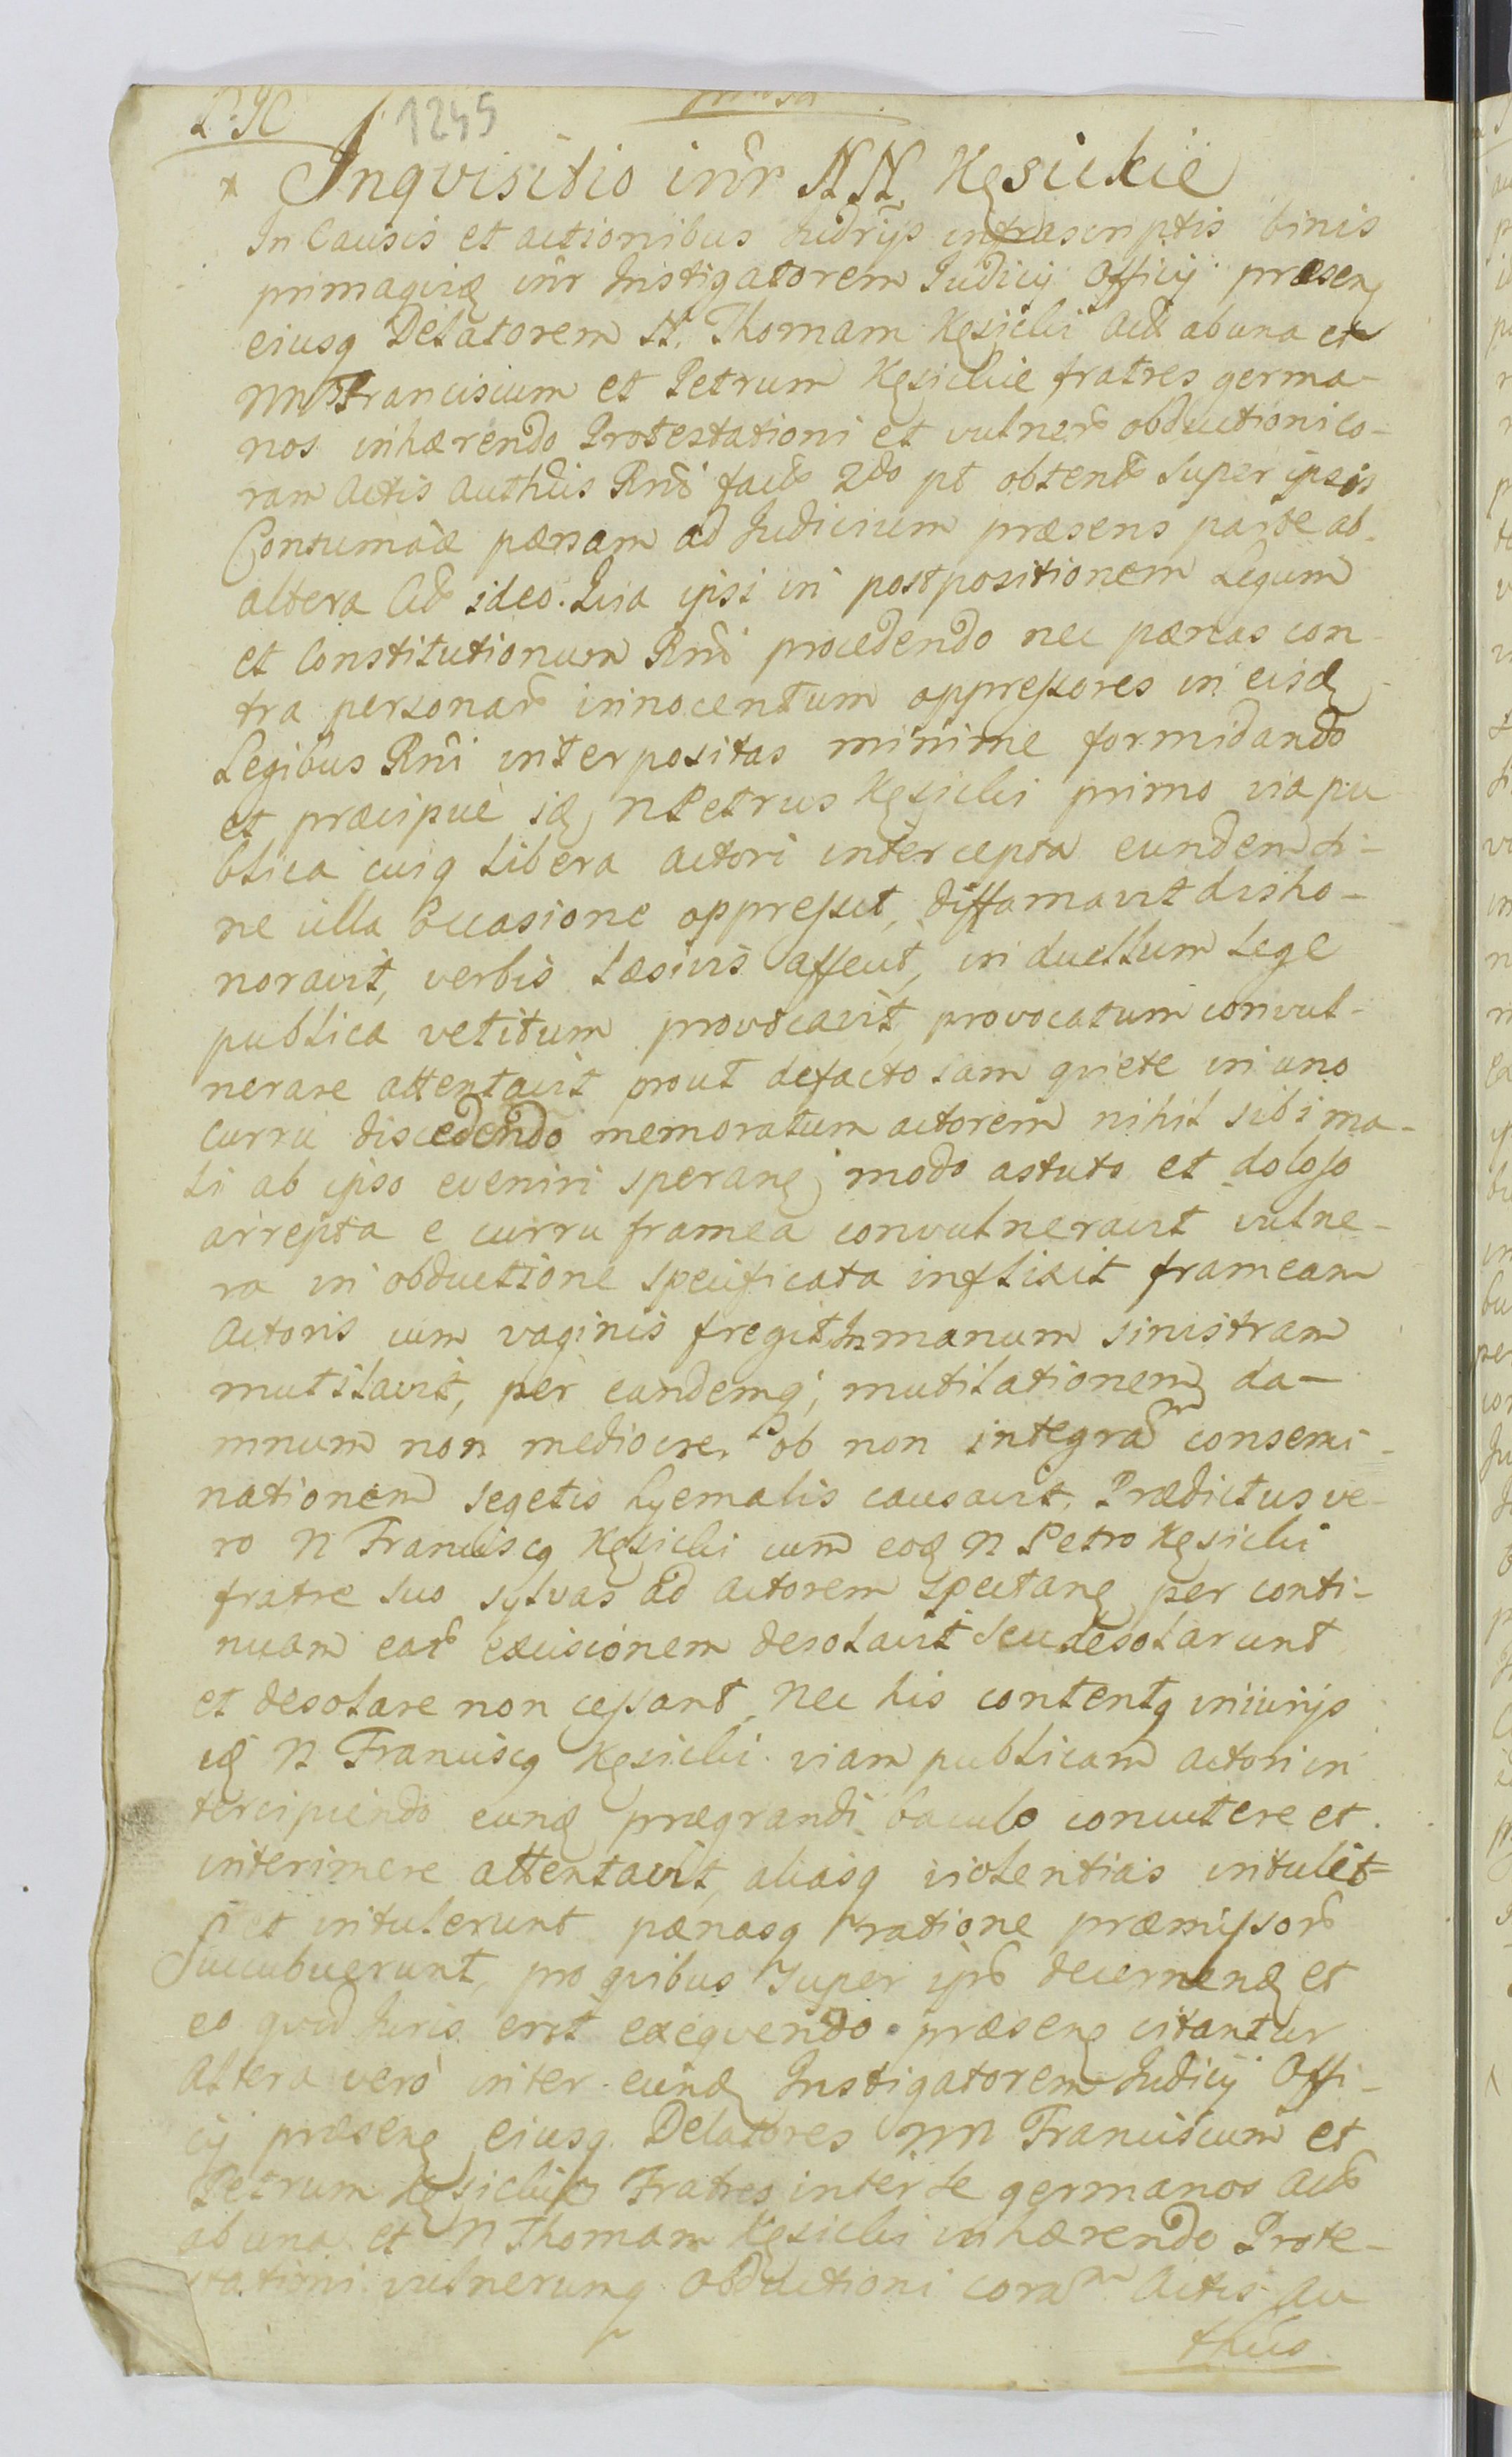 1245
* Inqvisitio inẽr NN. Kęsickie
In Causis et actionibus Judrijs infrascriptis binis
prima qvidę inẽr Instigatorem Judicij Officij præsenę
eiusq Delatorem N. Thomam Kęsicki Act ab una et
NN Franciscum et Petrum Kęsickie fratres germa-
nos inhærendo Protestationi et vulner obductioni co-
ram Actis Authcis Rndi fact 2do pt obtent super ipsis
pænam ad Judicium præsens parte ab
altera Cit ideo. Qvia ipsi in postpositionem Legum
et Constitutionum Rni procedendo nec pænas con-
tra personar innocentum oppressores in eisdę
Legibus Rni interpositas minime formidando
et præcipuè idę N Petrus Kęsicki primo via pu
blica cuiq libera actori intercepta eundem si-
ne ulla occasione oppressit, diffamavit disho-
noravit, verbis læsivis affecit, in duellum lege
publica vetitum provocavit, provocatum convul-
nerare attentavit prout de facto iam qviete in uno
curru discedendo memoratum actorem nihil sibi ma-
li ab ipso eveniri speranę, modo astuto et doloso
arrepta e curru framea convulneravit vulne-
ra in obductione specificata inflixit frameam
Actoris cum vaginis fregit In manum sinistram
mutilavit, per eandemq; mutilationem da-
mnum non mediocre, ob non integram consemi-
nationem segetis hyemalis causavit. Prædictus ve-
ro N Franciscq Kęsicki cum eodę N Petro Kęsicki
fratre suo sylvas ad Actorem spectanę per conti-
nuam ear excisionem desolavit seu desolarunt
et desolare non cessant, Nec his contentq iniurijs
idę N Franciscq Kęsicki viam publicam actori in
tercipiendo eundę prægrandi baculo concutere et
interimere attentavit, aliasq violentias intulit
et intulerunt pænasq ratione præmissor
Succubuerunt, pro qvibus super ipis decernendę et
eo qvid Juris erit exeqvendo præsenę citantur
Altera verò inter eundę Instigatorem Judicij Offi-
cij præsenę eiusq Delatores NN Franciscum et
Petrum Kęsickie Fratres inter se germanos Act
ab una et N Thomam Kęsicki inhærendo Prote-
stationi vulnerumq obductioni coram Actis Au
thcis